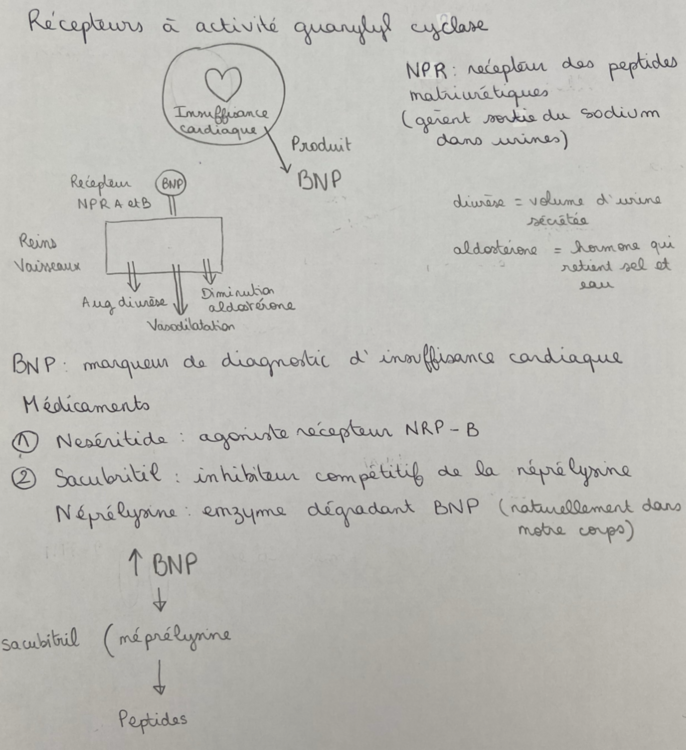 Récepteurs à activité guanylyl cyclase
Insuffisance
cardiaque
Produit
BNP
NPR : recepteur des peptides
natriurétiques
(gèrent sortie du sodium
dans urines)
Recepteur
NPR A et B
BNP
Reins
Vaisseaux
Aug diurèse
Vasodilatation
Diminution
aldostérone
diurèse = volume d'urine
sécrétée
aldostérone = hormone qui
retient sel et
eau
BNP : marqueur de diagnostic d'insuffisance cardiaque
Médicaments
① Neséritide : agoniste récepteur NRP-B
② Sacubritil : inhibiteur compétitif de la néprélysine
Néprélysine : enzyme dégradant BNP (naturellement dans
notre corps)
↑ BNP
sacubitril (néprélysine
Peptides